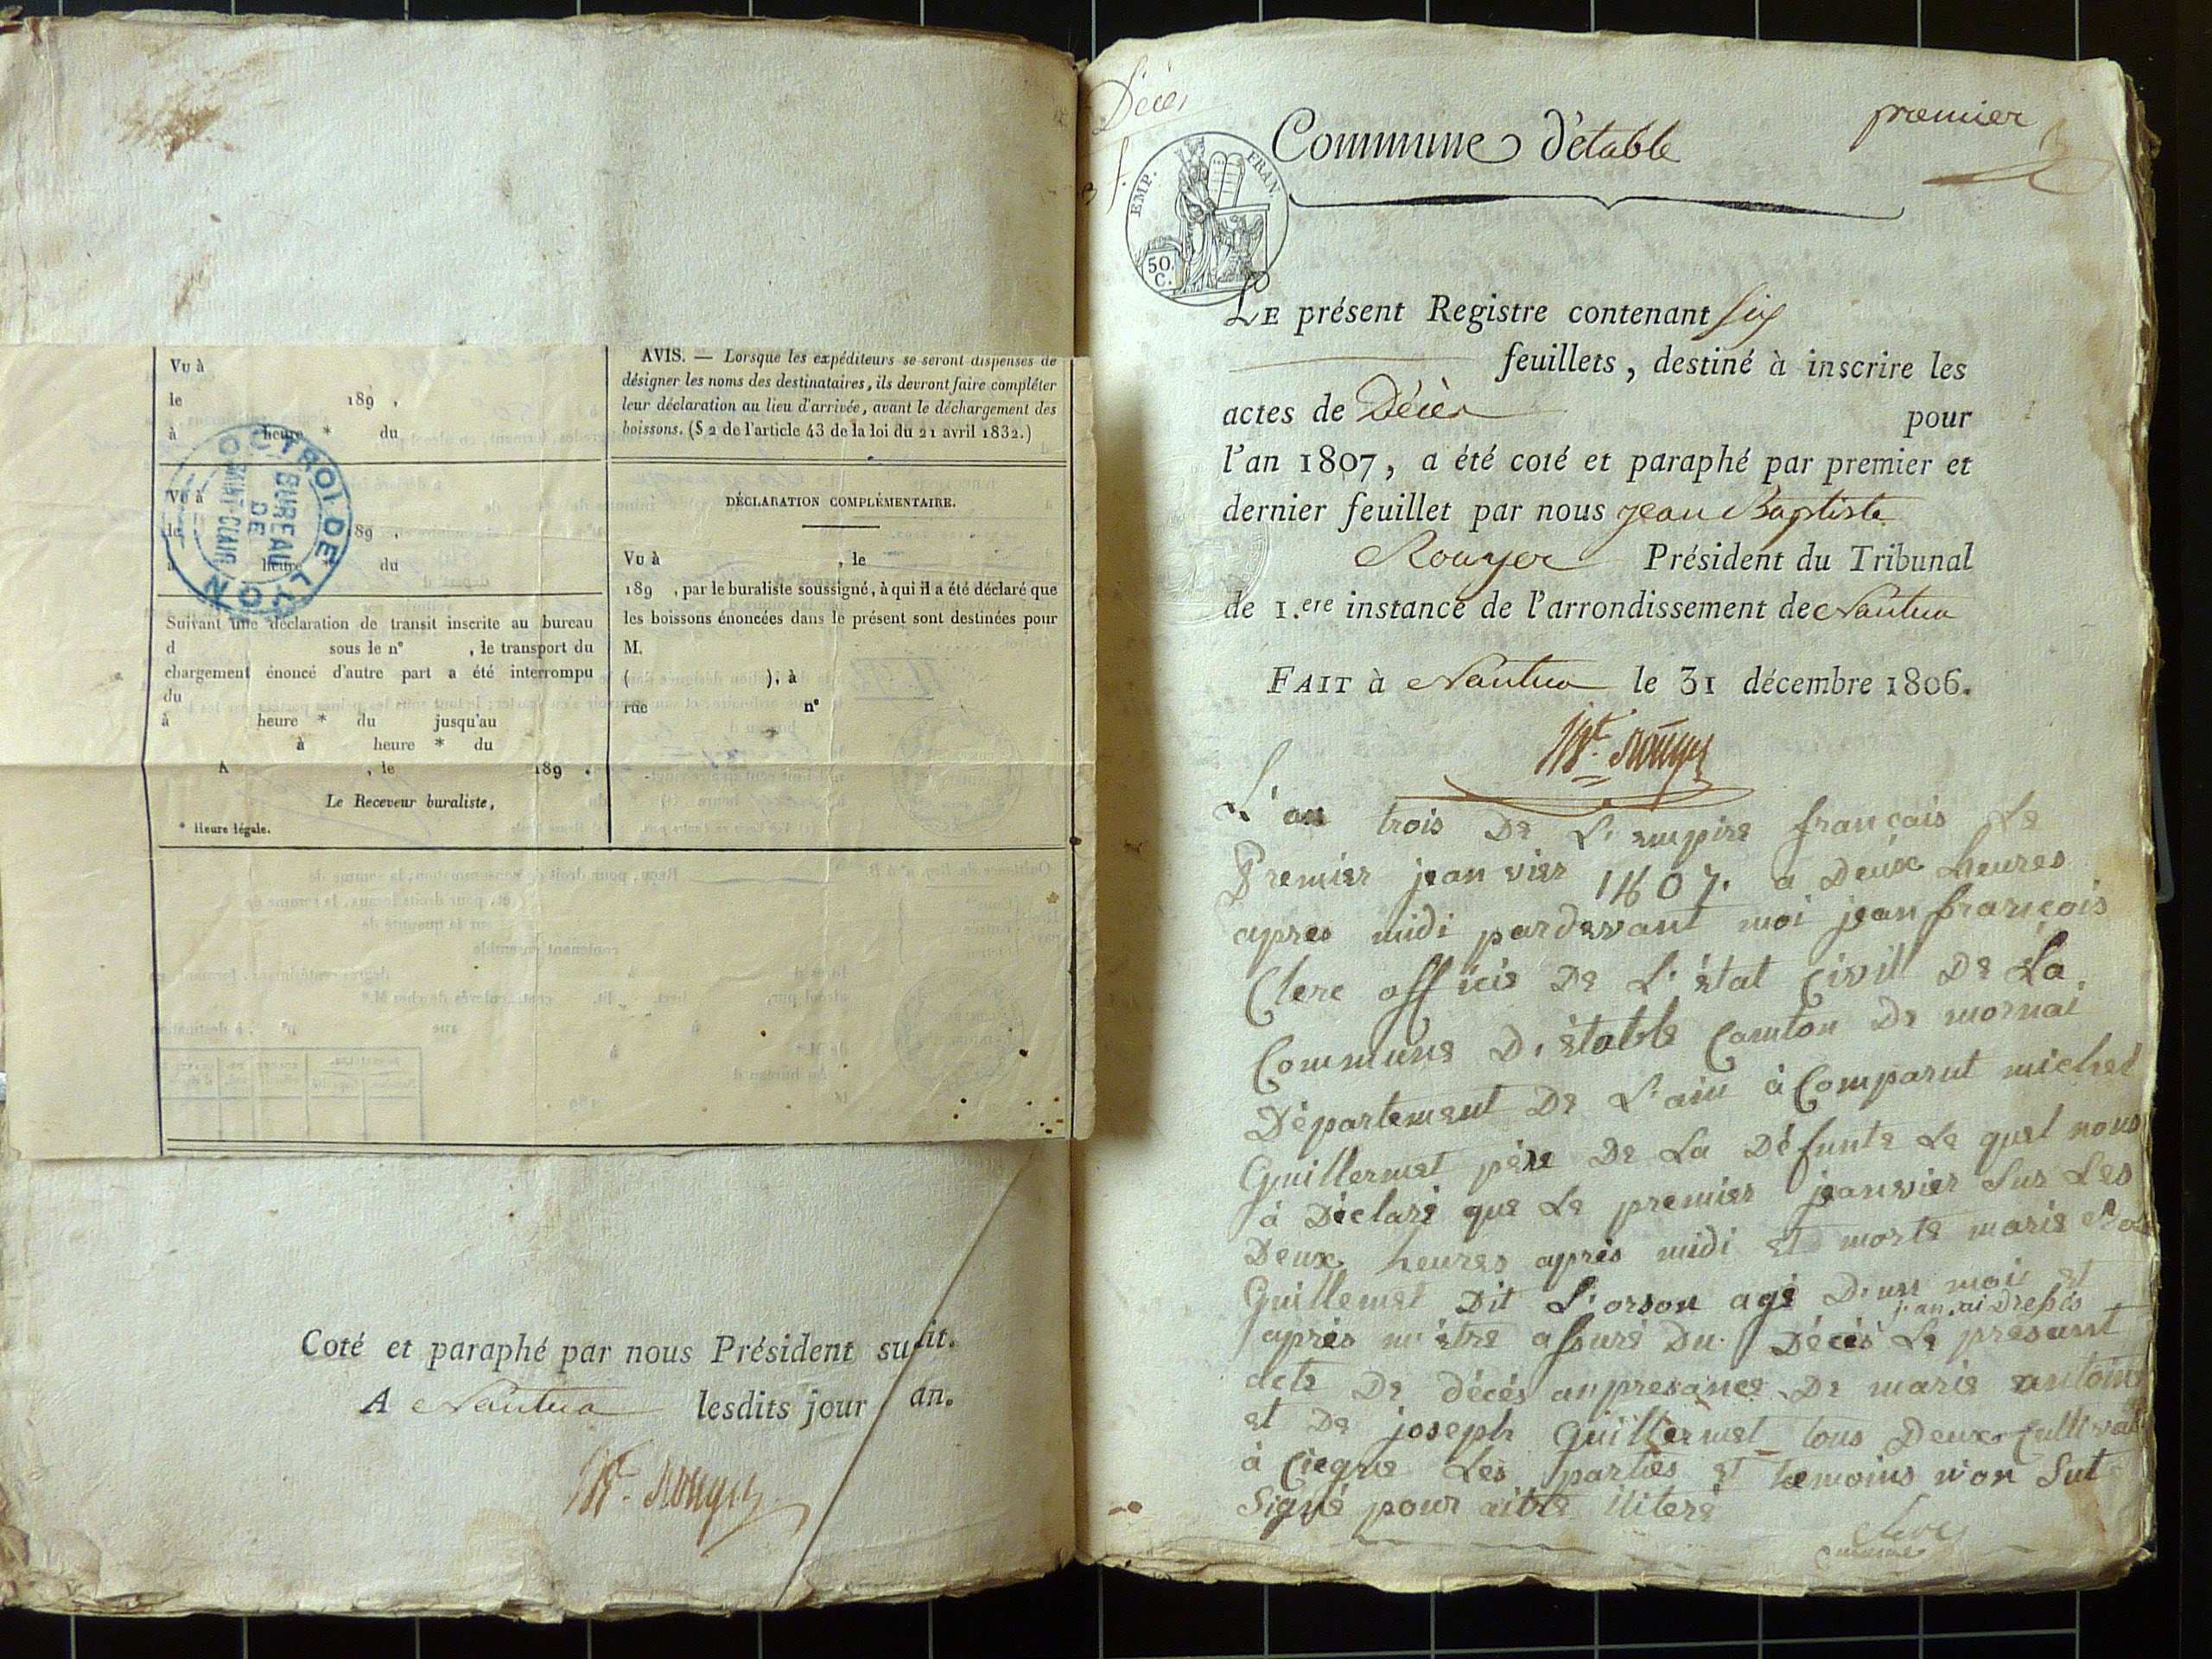 Vu à
le 189 ,
à heure * du
Vu à
le 189 ,
à heure * du
OCTROI DE LYON
BUREAU
DE
SAINT-CLAIR
Suivant une déclaration de transit inscrite au bureau
d sous le n° , le transport du
chargement énoncé d'autre part a été interrompu
du
à heure * du jusqu'au
à heure * du
A , le 189 .
Le Receveur buraliste,
* Heure légale.
AVIS. — Lorsque les expéditeurs se seront dispensés de
désigner les noms des destinataires, ils devront faire compléter
leur déclaration au lieu d'arrivée, avant le déchargement des
boissons. (§ 2 de l'article 43 de la loi du 21 avril 1832.)
DÉCLARATION COMPLÉMENTAIRE.
Vu à , le
189 , par le buraliste soussigné, à qui il a été déclaré que
les boissons énoncées dans le présent sont destinées pour
M.
( ), à
rue n°
Coté et paraphé par nous Président sudit.
A Nantua lesdits jour an.
JBte. Rouyer
Décès
premier
Commune d'étable
EMP. FRAN.
50.
C.
LE présent Registre contenant six
feuillets, destiné à inscrire les
actes de Décès pour
l'an 1807, a été coté et paraphé par premier et
dernier feuillet par nous jean Baptiste
Rouyer Président du Tribunal
de 1.ere instance de l'arrondissement de Nantua
FAIT à Nantua le 31 décembre 1806.
JBte. Rouyer
L'an trois De L'empire français Le
Premier jeanvier 1807. a Deux heures
apres midi pardevant moi jean françois
Clerc officie De L'état Civill De La
Commune D'étable Camton De mornai
Département De L'ain à Comparut michel
Guillermet père De La Défunte Le quel nous
à Déclaré que Le premier jeanvier Sur Les
Deux heures après midi et morte marie
Guillemet Dit L'orson agé D'un moi et
après m'être assuré Du Décès j'an ai Dresés Le présant
acte De décés an presance De marie antoine
et De joseph Guillermet tous Deux Cultivat
à Ciegne Les parties et temoins n'on Sut
Signé pour aitre iliteré
Clerc